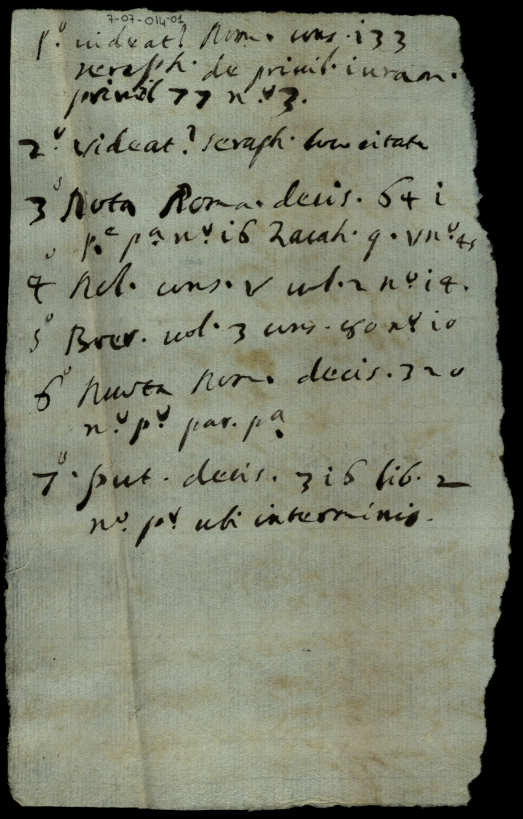 7-07-014-01
p.º videat? Rom. cons. 133
seraph. de privil. iuram.
privil 77 n.º 3.
2.º videat? seraph. loco citato
3º Rota Roma. decis. 641
p.e pª nº 16 Zacah. q. v nº 45
4º Rol. cons. v vol. 2 nº 14.
5º Boer. vol. 3 cons. 80 nº 10
6º Ruota Rom. decis. 320
n.º pº par. pª
7º. put. decis. 316 lib. 2
nº. pº ubi interminis.